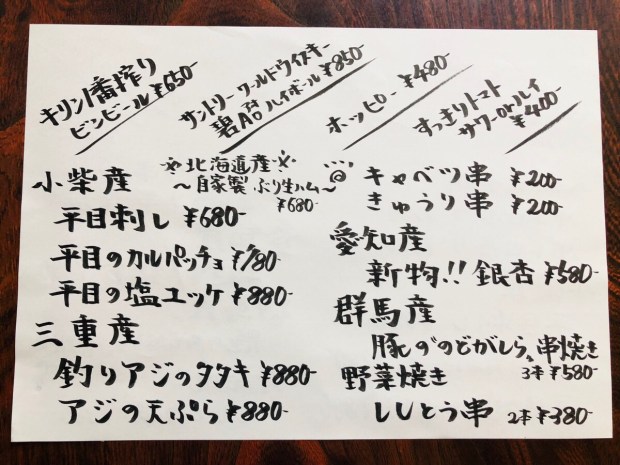 キリン一番搾り
ビンビール ¥650-
サントリーワールドウイスキー
碧Ao ハイボール ¥850-
ホッピー ¥480-
すっきりトマト
サワーorハイ
¥400-
小柴産
北海道産
〜自家製 ぶり生ハム〜
¥680-
平目刺し ¥680-
平目のカルパッチョ ¥780-
平目の塩ユッケ ¥880-
三重産
釣りアジのタタキ ¥880-
アジの天ぷら ¥880-
キャベツ串 ¥200-
きゅうり串 ¥200-
愛知産
新物!! 銀杏 ¥580-
群馬産
豚の"のどがしら"串焼き
3本 ¥580-
野菜焼き
ししとう串 2本 ¥380-